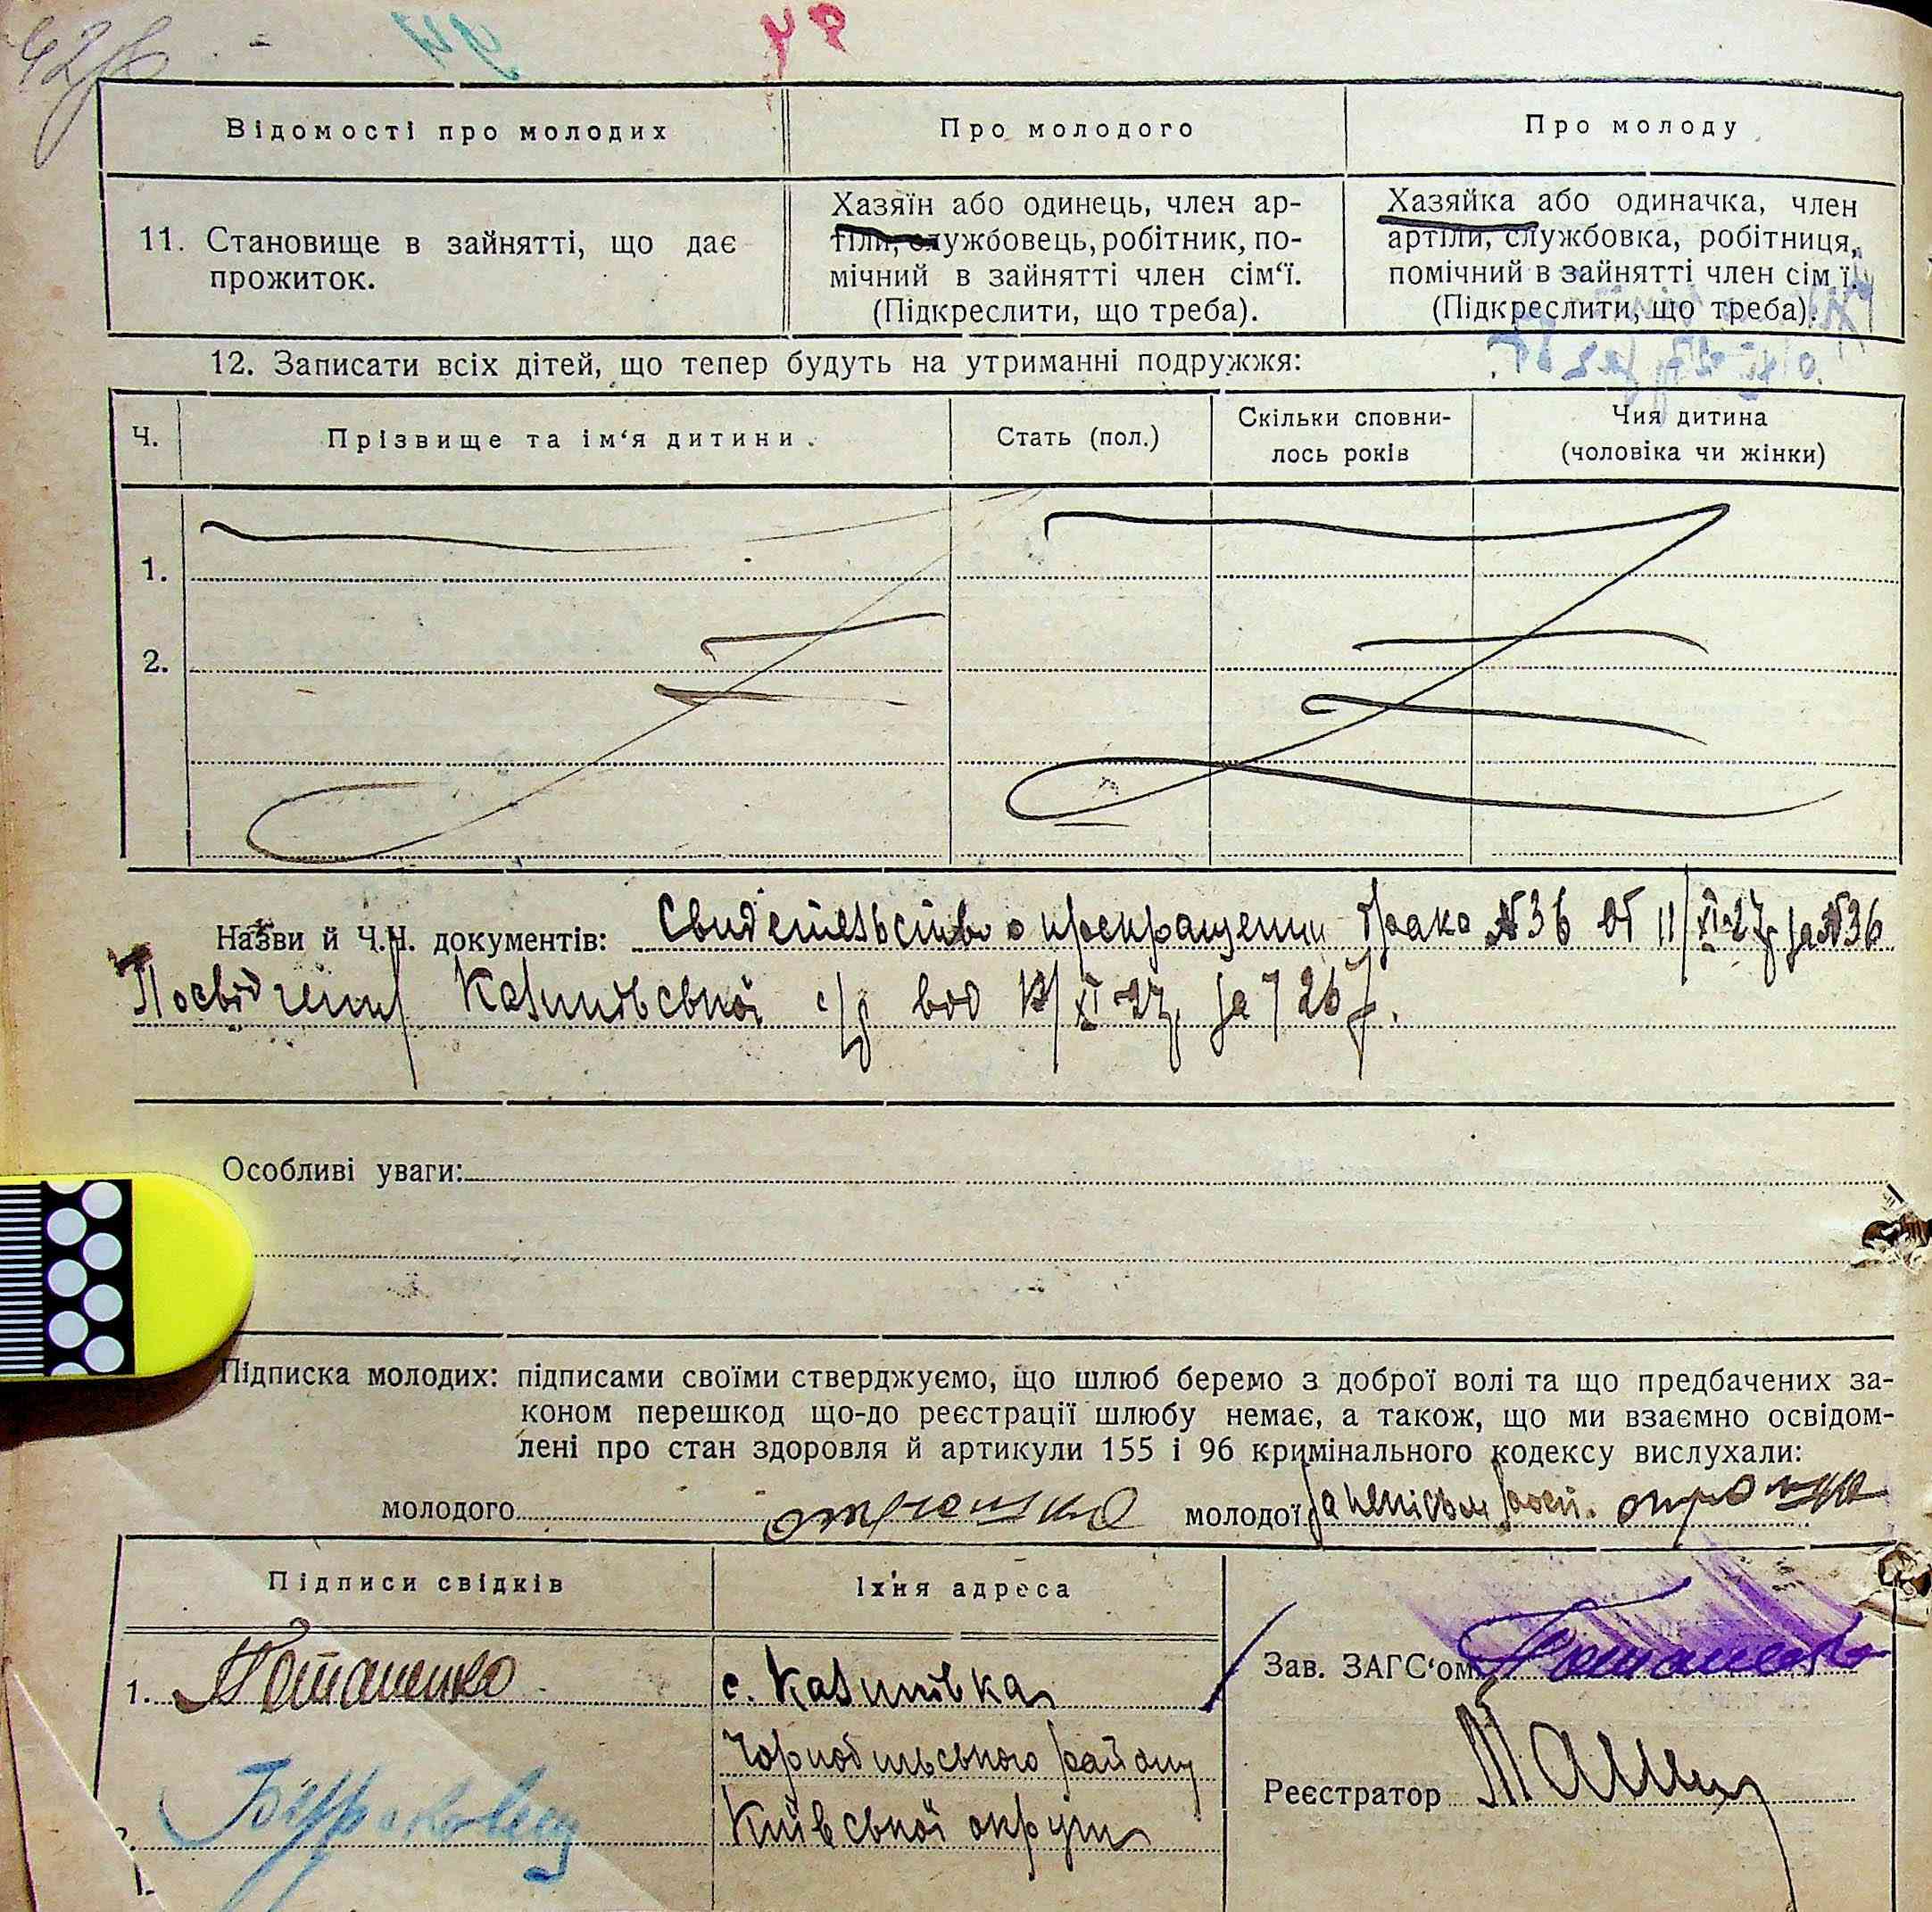 42
Відомості про молодих
Про молодого
Про молоду
11. Становище в зайнятті, що дає
прожиток.
Хазяїн або одинець, член ар-
тіли, службовець, робітник, по-
мічний в зайнятті член сім‘ї.
(Підкреслити, що треба).
Хазяйка або одиначка, член
артіли, службовка, робітниця,
помічний в зайнятті член сім ї.
(Підкреслити, що треба).
12. Записати всіх дітей, що тепер будуть на утриманні подружжя:
Ч.
Прізвище та ім‘я дитини.
Стать (пол.)
Скільки сповни-
лось років
Чия дитина
(чоловіка чи жінки)
1.
2.
Назви й Ч.Ч. документів: Свидетельство о прекращении брака №36 от 11/XI-27р за №36
Посвідчення Капитовської с/р від 12/XI-27р за
Особливі уваги:
Підписка молодих: підписами своїми стверджуємо, що шлюб беремо з доброї волі та що предбачених за-
коном перешкод що-до реєстрації шлюбу немає, а також, що ми взаємно освідом-
лені про стан здоровля й артикули 155 і 96 кримінального кодексу вислухали:
молодого
молодої
Підписи свідків
Їхня адреса
1. Потапенко
с.
Чорнобильського району
Київської округи
Зав. ЗАГС‘ом Потапенко
Реєстратор